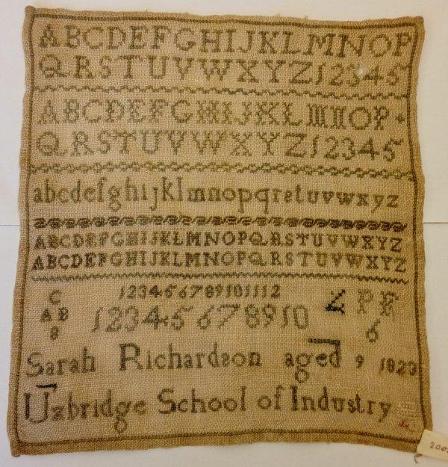 ABCDEFGHIJKLMNOP
QRSTUVWXYZ12345
ABCDEFGHIJKLMNOP
QRSTUVWXYZ12345
abcdefghijklmnopqrstuvwxyz
ABCDEFGHIJKLMNOPQRSTUVWXYZ
ABCDEFGHIJKLMNOPQRSTUVWXYZ
C 123456789101112
AB 12345678910 PF
8 6
Sarah Richardson aged 9 1823
Uxbridge School of Industry